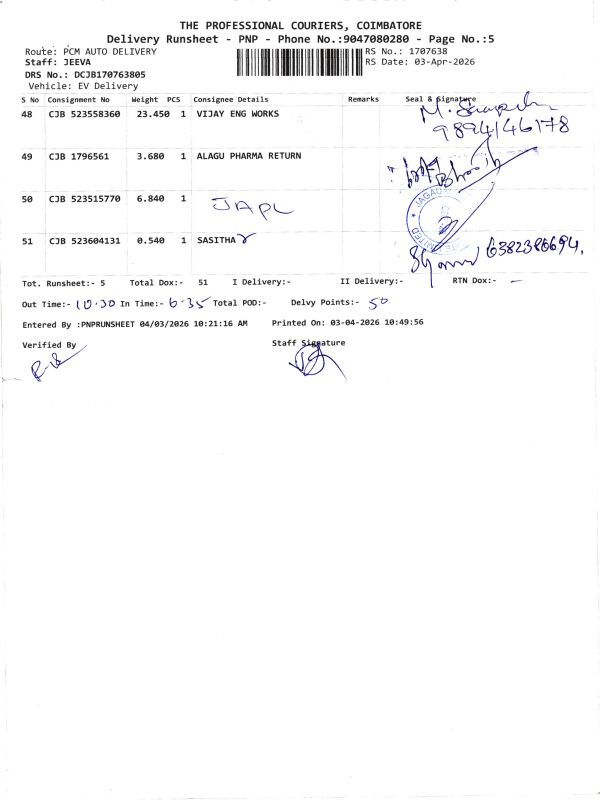 THE PROFESSIONAL COURIERS, COIMBATORE
Delivery Runsheet - PNP - Phone No.:9047080280 - Page No.:5
Route: PCM AUTO DELIVERY RS No.: 1707638
Staff: JEEVA RS Date: 03-Apr-2026
DRS No.: DCJB170763805
Vehicle: EV Delivery
S No Consignment No Weight PCS Consignee Details Remarks Seal & Signature
48 CJB 523558360 23.450 1 VIJAY ENG WORKS
9894146178
49 CJB 1796561 3.680 1 ALAGU PHARMA RETURN
50 CJB 523515770 6.840 1 JAPL
51 CJB 523604131 0.540 1 SASITHA
Tot. Runsheet:- 5 Total Dox:- 51 I Delivery:- II Delivery:- RTN Dox:- -
Out Time:- 10.30 In Time:- 6-35 Total POD:- Delvy Points:- 50
Entered By :PNPRUNSHEET 04/03/2026 10:21:16 AM Printed On: 03-04-2026 10:49:56
Verified By Staff Signature